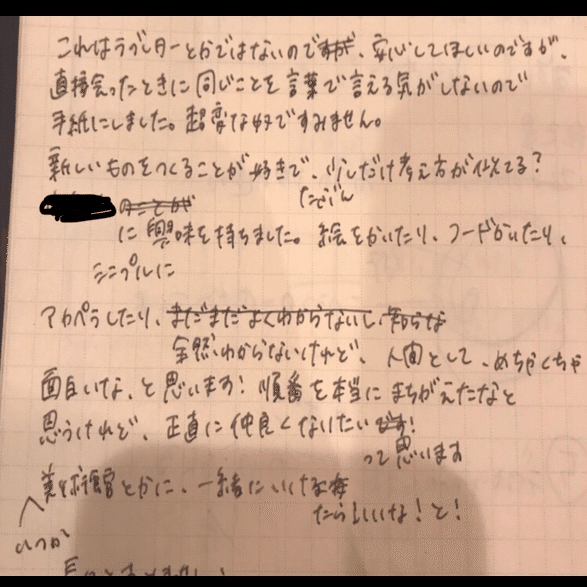 これはラブレターとかではないのですが、安心してほしいのですが、
直接会ったときに同じことを言葉で言える気がしないので
手紙にしました。超変な奴ですみません。
新しいものをつくることが好きで、少しだけ考え方が似てる？
たぶん
のことが
に興味を持ちました。絵をかいたり、コードかいたり、
シンプルに
アカペラしたり、まだまだよくわからないし、知らな
全然わからないけれど、人間として、めちゃくちゃ
面白いな、と思います！順番を本当にまちがえたなと
思うけれど、正直に仲良くなりたいです！
って思います
美術館とかに、一緒にいけ
たらいいな！と！
いつか